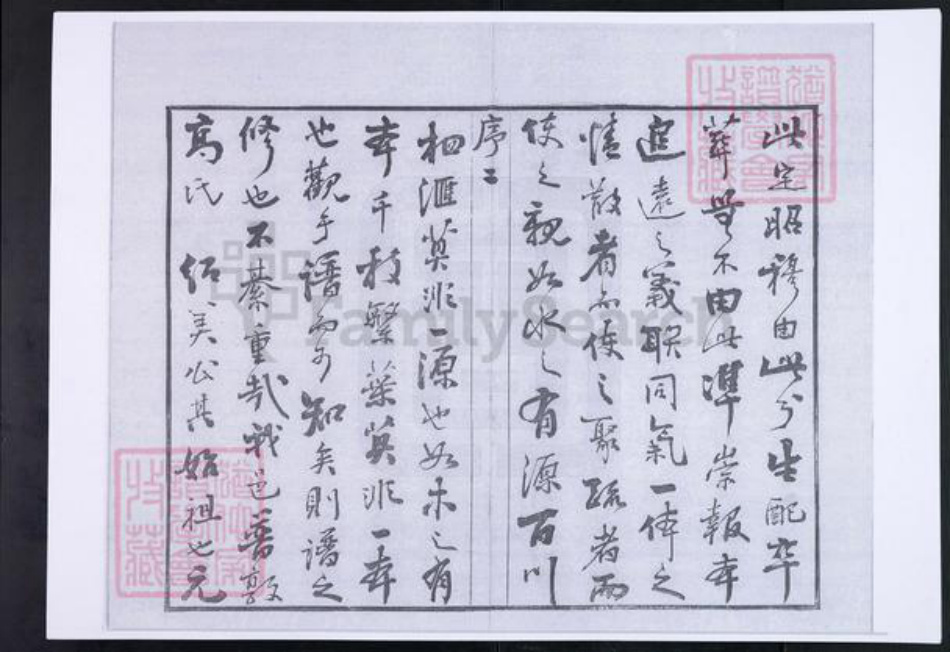 此定昭穆由此分生配卒
葬罔不由此準崇報本
追遠之義联同氣一体之
情散者而使之聚疏者而
使之親如水之有源百川
序二
細滙莫非一源也如木之有
本千枝繁葉莫非一本
也觀乎譜而可知矣則譜之
修也不綦重哉我邑普敦
高氏 紹美公其始祖也元
FamilySearch